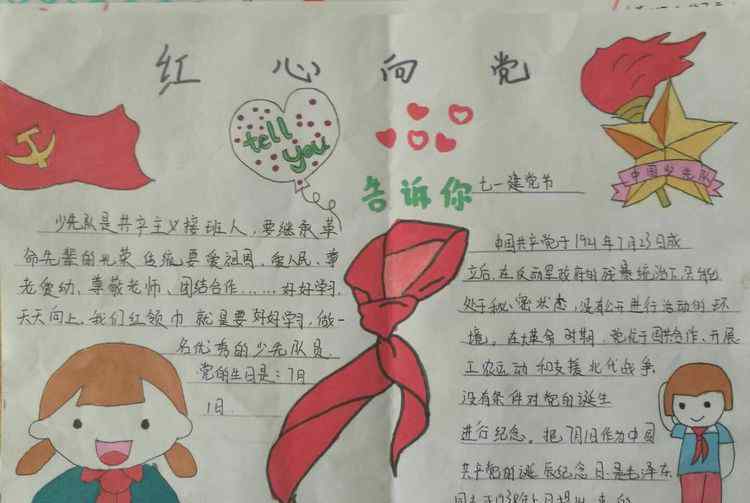 红心向党
tell
you
告诉你
中国少先队
七一建党节
少先队是共产主义接班人，要继承革
命先辈的光荣传统要爱祖国、爱人民、尊
老爱幼、尊敬老师、团结合作……好好学习，
天天向上，我们红领巾就是要好好学习，做一
名优秀的少先队员，
党的生日是：7月
1日
中国共产党于1921年7月23日成
立后，在反动军政府的残暴统治下，只能
处于秘密状态，没有公开进行活动的环
境。在大革命时期，党忙于国共合作、开展
工农运动和支援北伐战争
没有条件对党的诞生
进行纪念。把7月1日作为中国
共产党的诞辰纪念日是毛泽东